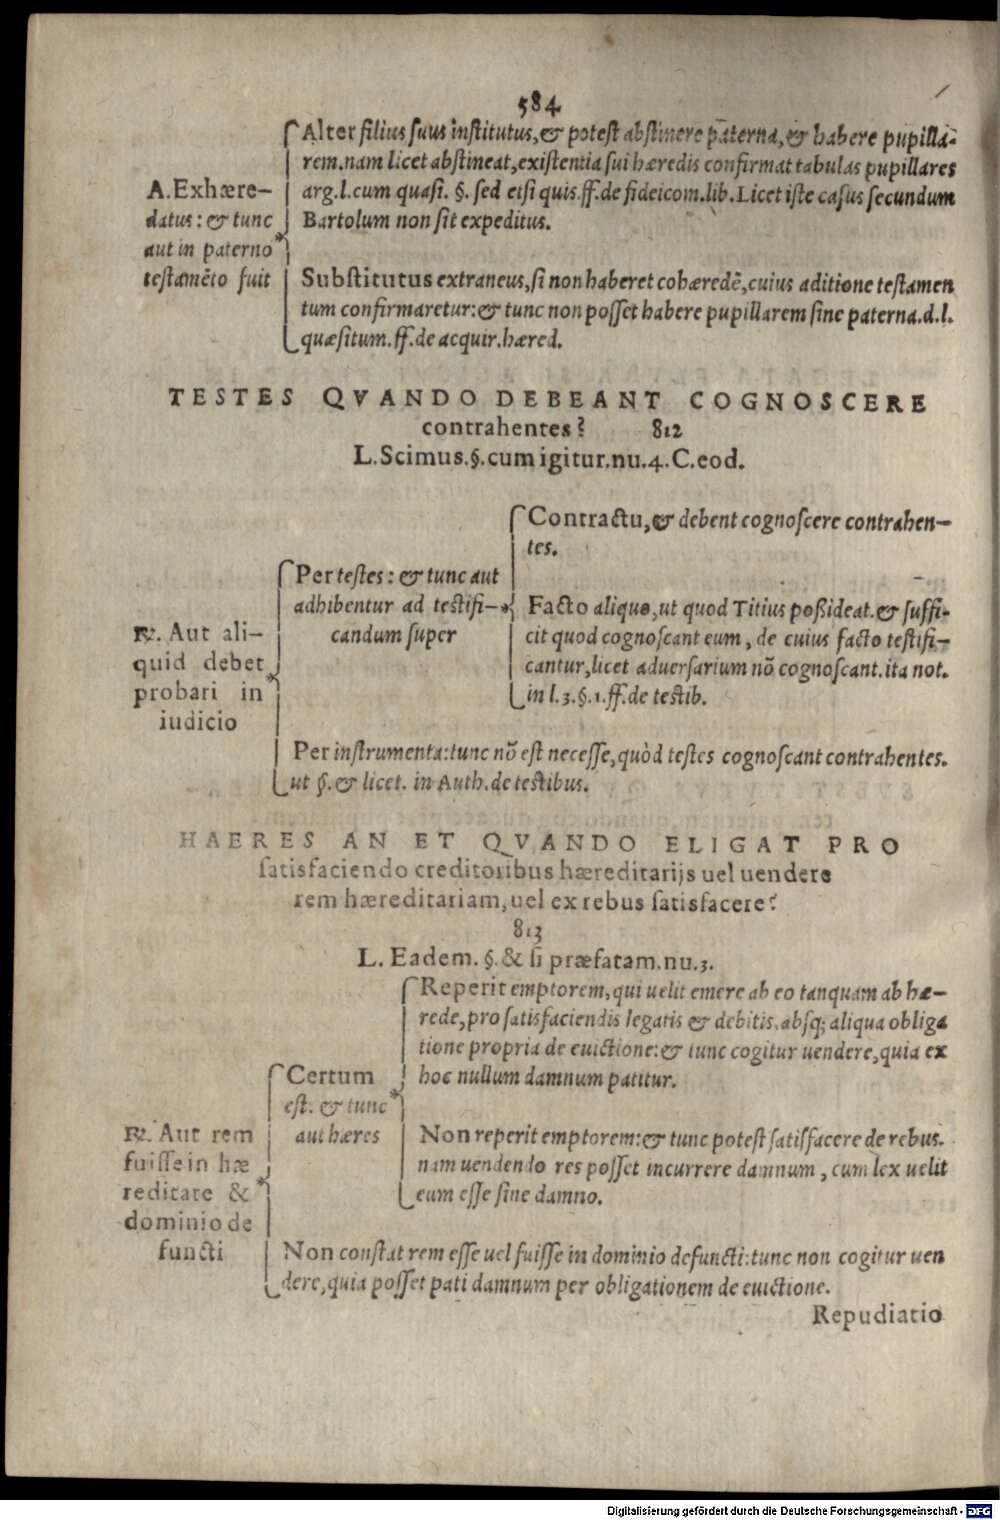 584
Alter filius suus institutus,& potest abstinere paterna,& habere pupilla-
rem.nam licet abstineat,existentia sui hæredis confirmat tabulas pupillares
arg.l.cum quasi. §. sed etsi quis.ff.de fideicom.lib. Licet iste casus secundum
Bartolum non sit expeditus.
A.Exhære-
datus: & tunc
aut in paterno
testamẽto fuit
Substitutus extraneus, si non haberet cohæredẽ, cuius aditione testamen
tum confirmaretur: & tunc non posset habere pupillarem sine paterna.d.l.
quæsitum.ff.de acquir.hæred.
TESTES QVANDO DEBEANT COGNOSCERE
contrahentes? 812
L.Scimus.§.cum igitur.nu.4.C.eod.
Contractu,& debent cognoscere contrahen-
tes.
Per testes: & tunc aut
adhibentur ad testifi-
candum super
Facto aliquo,ut quod Titius poßideat.& suffi-
cit quod cognoscant eum, de cuius facto testifi-
cantur,licet aduersarium nõ cognoscant.ita not.
in l.3.§.1.ff.de testib.
℞. Aut ali-
quid debet
probari in
iudicio
Per instrumenta:tunc nõ est necesse,quòd testes cognoscant contrahentes.
ut §.& licet. in Auth.de testibus.
HAERES AN ET QVANDO ELIGAT PRO
satisfaciendo creditoribus hæreditarijs uel uendere
rem hæreditariam,uel ex rebus satisfacere?
813
L. Eadem. §. & si præfatam.nu.3.
Reperit emptorem,qui uelit emere ab eo tanquam ab hæ-
rede,pro satisfaciendis legatis & debitis,absq; aliqua obliga
tione propria de euictione:& tunc cogitur uendere,quia ex
hoc nullum damnum patitur.
Certum
est. & tunc
aut hæres
Non reperit emptorem:& tunc potest satisfacere de rebus.
nam uendendo res posset incurrere damnum, cum lex uelit
eum esse sine damno.
℞. Aut rem
fuisse in hæ
reditate &
dominio de
functi
Non constat rem esse uel fuisse in dominio defuncti:tunc non cogitur uen
dere,quia posset pati damnum per obligationem de euictione.
Repudiatio
Digitalisierung gefördert durch die Deutsche Forschungsgemeinschaft - DFG